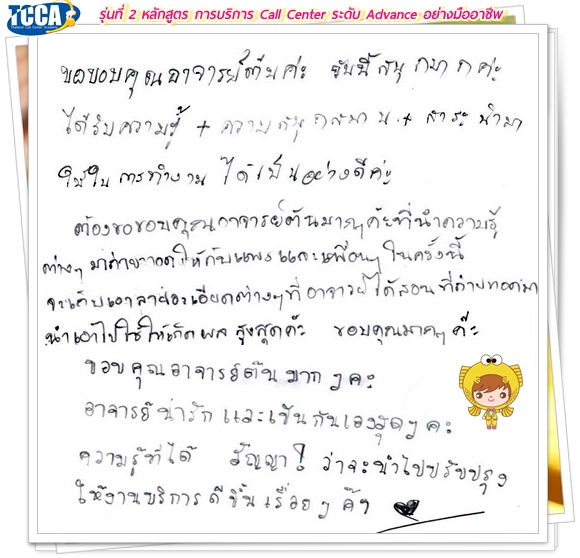 TCCA
รุ่นที่ 2 หลักสูตร การบริการ Call Center ระดับ Advance อย่างมืออาชีพ
ขอขอบคุณอาจารย์ต้นค่ะ วันนี้สนุกมากค่ะ
ได้รับความรู้ + ความสนุกสนาน + สาระ นำมา
ใช้ในการทำงานได้เป็นอย่างดีค่ะ
ต้องขอขอบคุณอาจารย์ต้นมากๆค่ะที่นำความรู้
ต่างๆ มาถ่ายทอดให้กับแพรและเพื่อนๆในครั้งนี้
จะเก็บเอารายละเอียดต่างๆที่อาจารย์ได้สอนที่ถ่ายทอดมา
นำเอาไปใช้ให้เกิดผลสูงสุดค่ะ ขอบคุณมากๆค่ะ
ขอบคุณอาจารย์ต้นมากๆคะ
อาจารย์น่ารักและเป็นกันเองสุดๆคะ
ความรู้ที่ได้ สัญญา! ว่าจะนำไปปรับปรุง
ให้งานบริการดีขึ้นเรื่อยๆ